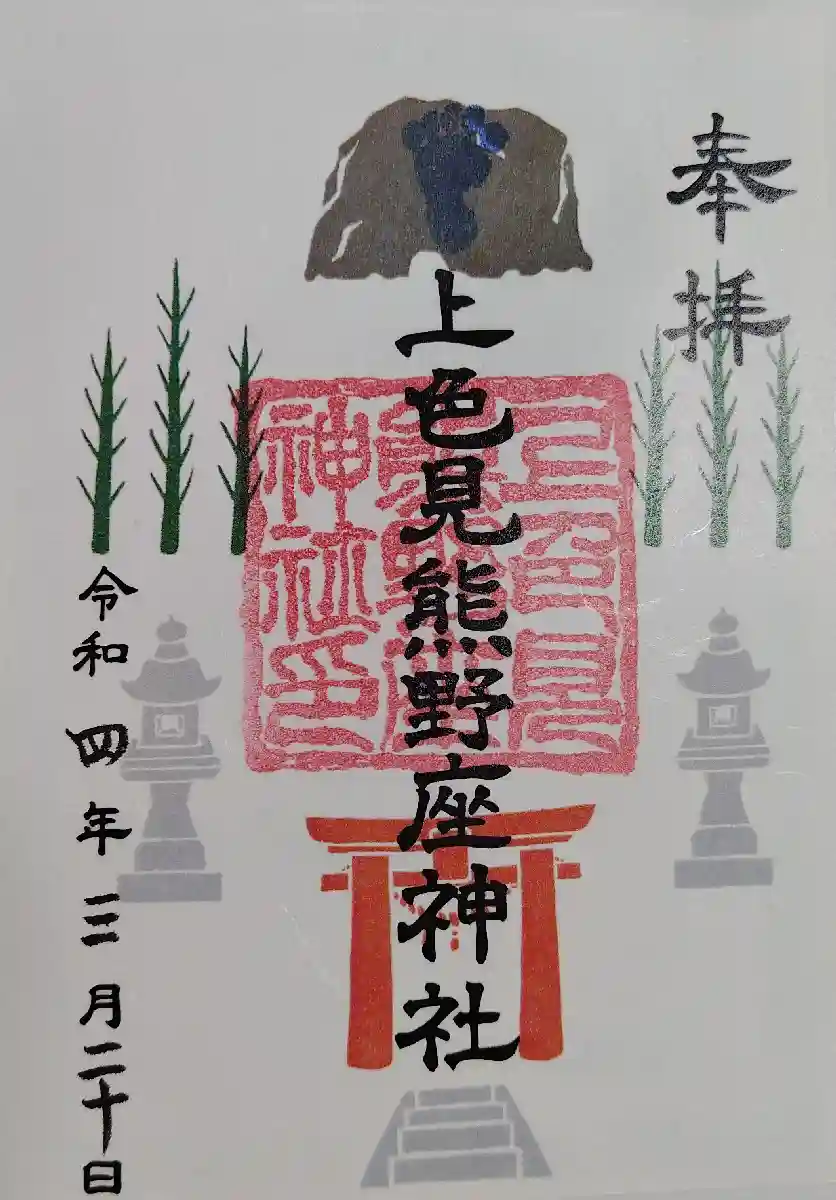 奉拝
上色見熊野座神社
上色見
熊野座
神社印
令和四年三月二十日